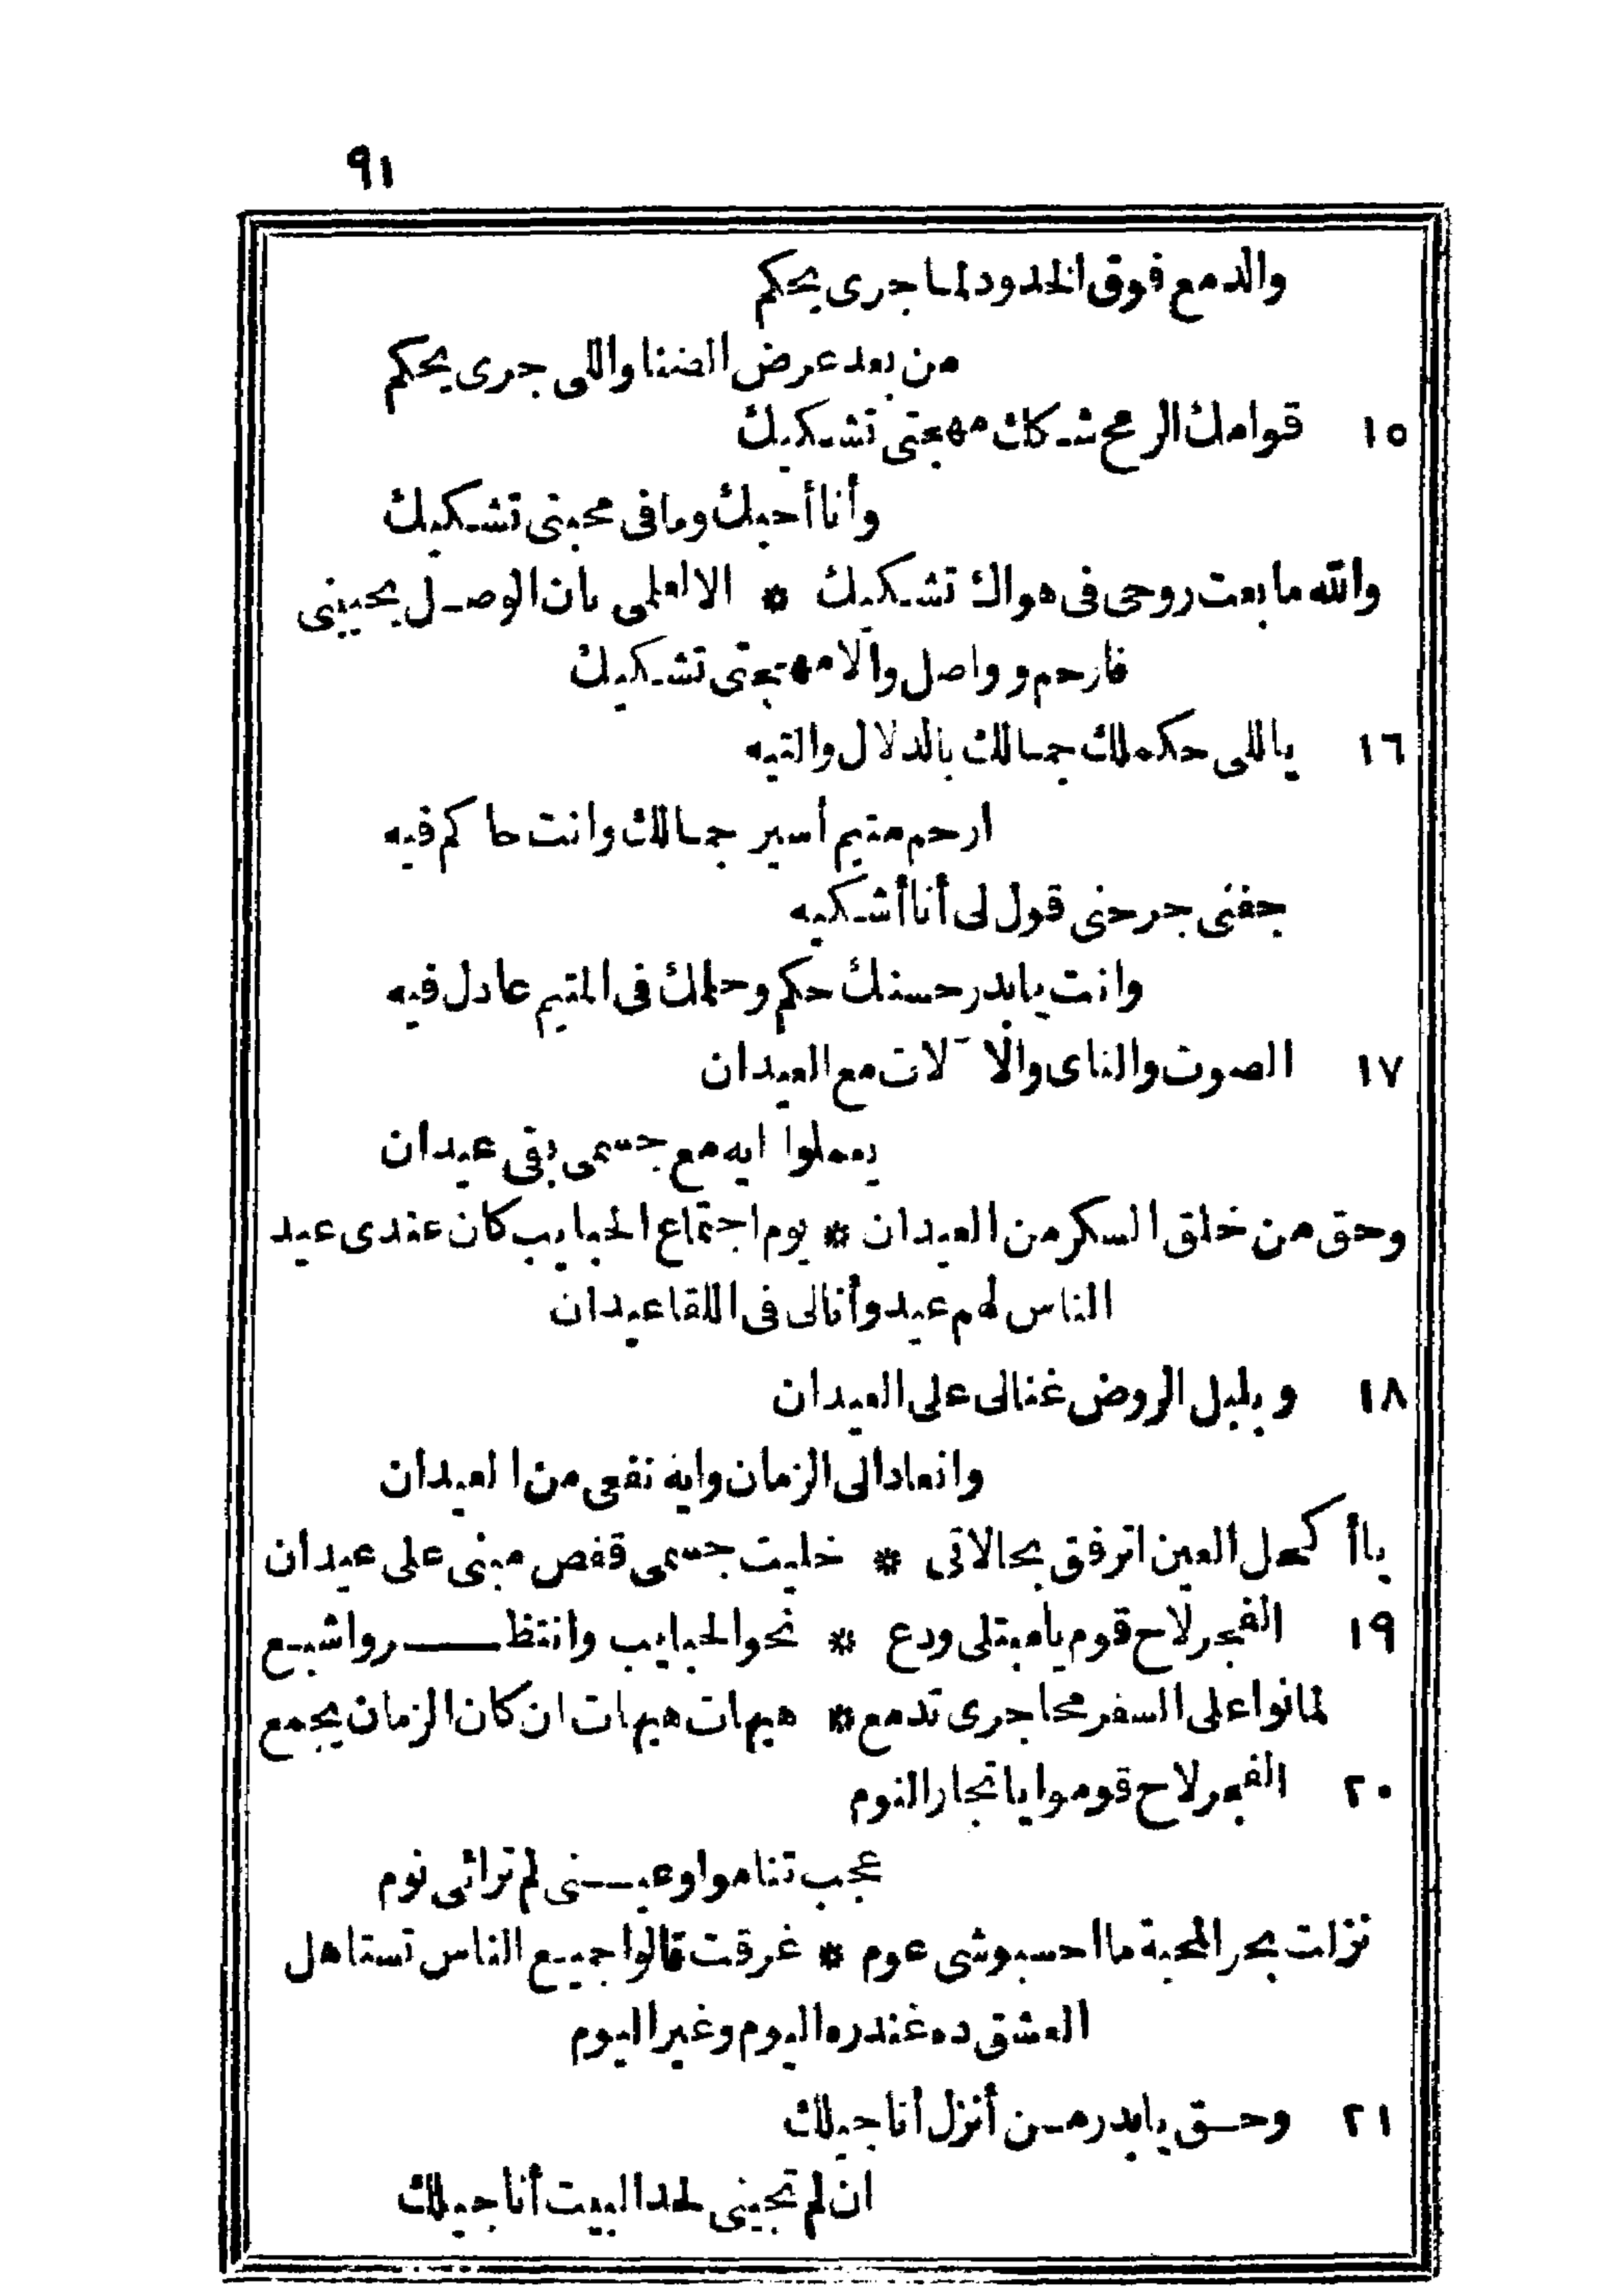 ٩١
والدمع فوق الخدود لما جرى يحكم
من بعد عرض الضنا واللى جرى يحكم
١٥ قوامك الرمح شكك مهجتى تشكيك
وأنا أحبك وما فى محبتى تشكيك
والله ما بعت روحى فى هواك تشكيك * الا لعلمى بان الوصل يحيينى
فارحم وواصل والا مهجتى تشكيك
١٦ ياللى حكم لك جمالك بالدلال والتيه
ارحم متيم أسير جمالك وانت حاكم فيه
جفنى جرحنى قول لى أنا أشكيه
وانت يا بدر حسنك حكم وحلمك فى المتيم عادل فيه
١٧ الصوت والناى والآلات مع العيدان
يعملوا ايه مع جسمى بقى عيدان
وحق من خلق السكر من العيدان * يوم اجتماع الحبايب كان عندى عيد
الناس لهم عيد وأنا لى فى اللقا عيدان
١٨ وبلبل الروض غنا لى على العيدان
وانعاد الى الزمان وايه نفعى من العيدان
يا أكحل العين اترفق بحالاتى * خليت جسمى قفص مبنى على عيدان
١٩ الفجر لاح قوم يا مبتلى ودع * نحو الحبايب وانتظروا شيع
لما نوا على السفر محاجرى تدمع * هيهات هيهات ان كان الزمان يجمع
٢٠ الفجر لاح قوموا يا تجار النوم
عجب تناموا وعينى لم ترائى نوم
نزلت بحر المحبة ما احسبوشى عوم * غرقت قالوا جميع الناس تستاهل
العشق ده غندره اليوم وغير اليوم
٢١ وحق يا بدر من أنزل أناجيلك
ان لم تجينى لحد البيت أنا جيلك